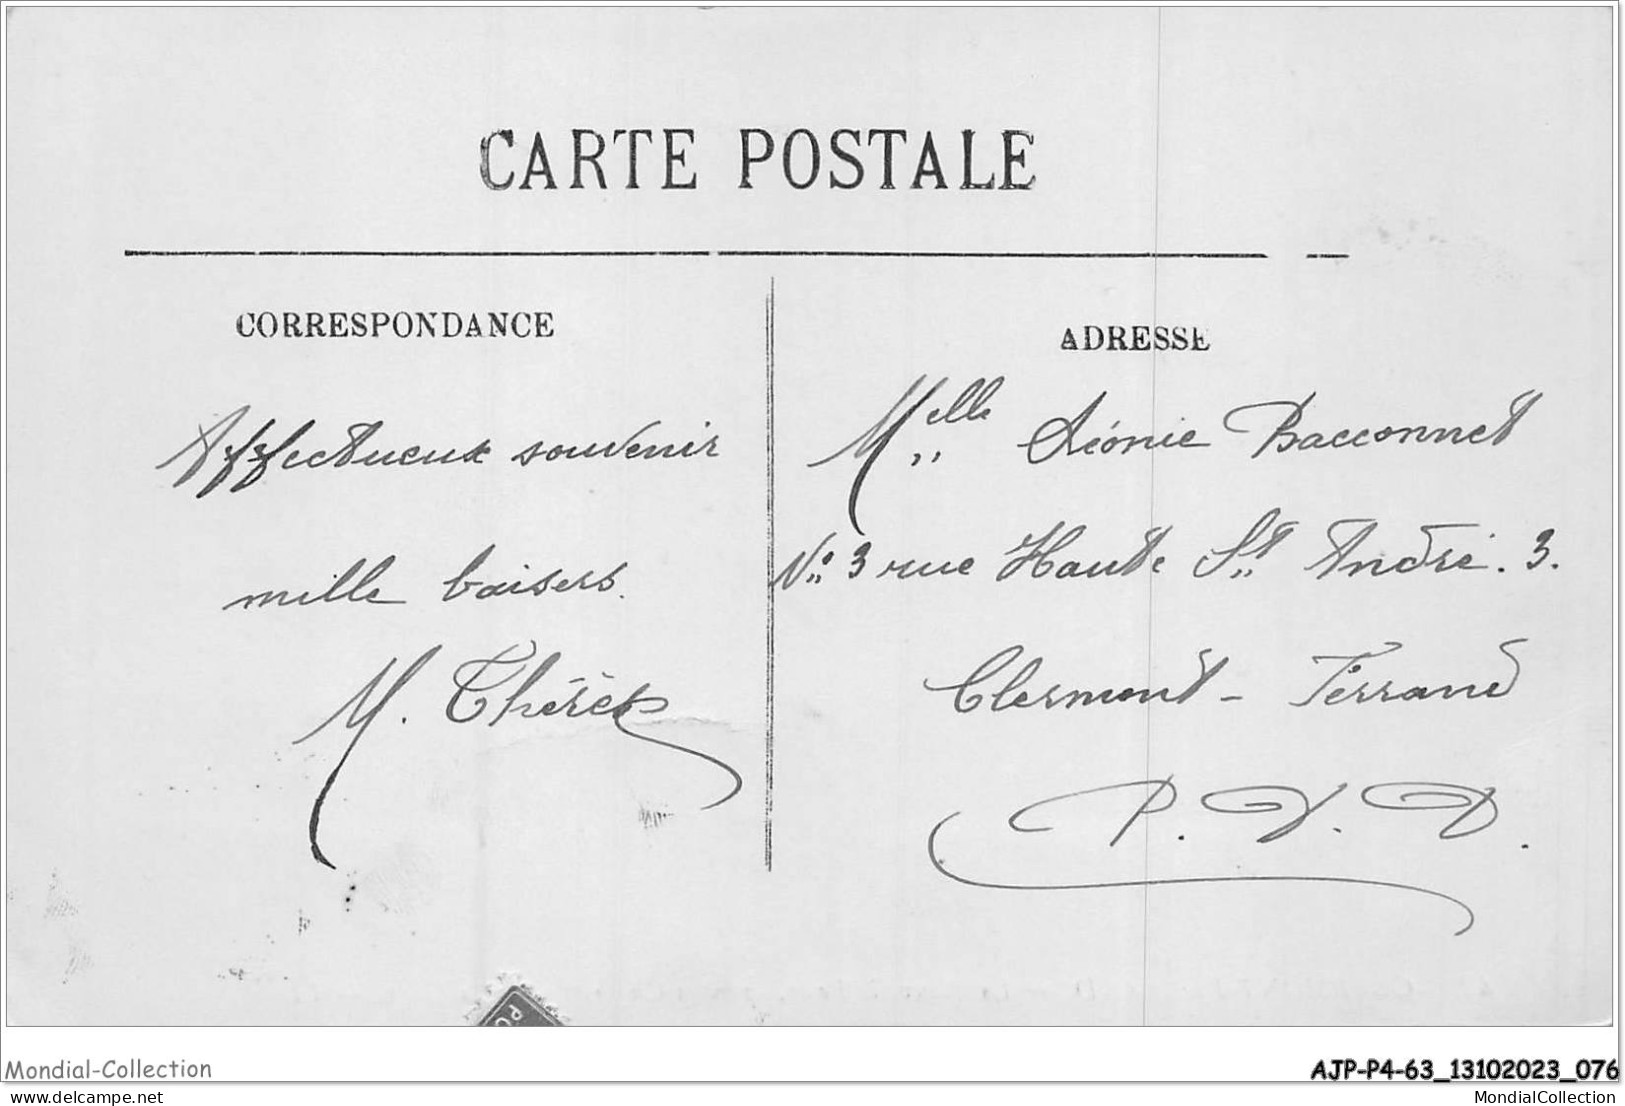 CARTE POSTALE
CORRESPONDANCE
Affectueux souvenir
mille baisers.
M. Thérèt
ADRESSE
Melle Léonie Bacconnet
No 3 rue Haute St André. 3.
Clermont-Ferrand
P. D. D.
PO
Mondial-Collection
AJP-P4-63_13102023_076
delcampe.net
MondialCollection